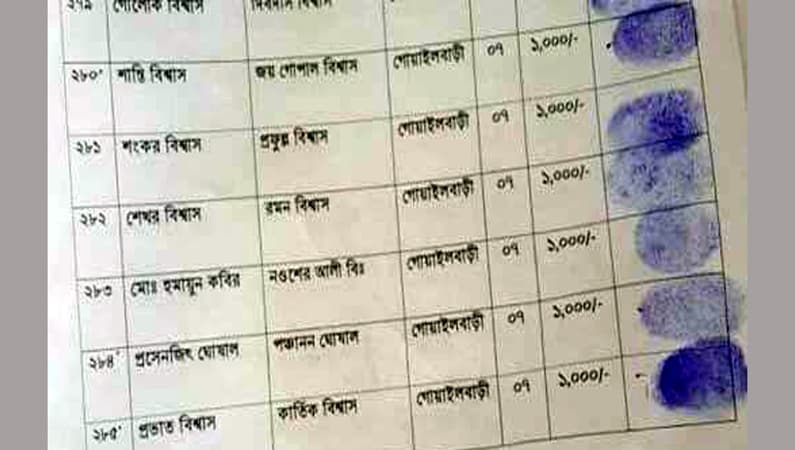 ২৭৯ গোলোক বিশ্বাস বিশ্বাস
২৮০ শান্তি বিশ্বাস জয় গোপাল বিশ্বাস গোয়াইলবাড়ী ০৭ ১,০০০/-
২৮১ শংকর বিশ্বাস প্রফুল্ল বিশ্বাস গোয়াইলবাড়ী ০৭ ১,০০০/-
২৮২ শেখর বিশ্বাস রমন বিশ্বাস গোয়াইলবাড়ী ০৭ ১,০০০/-
২৮৩ মোঃ হুমায়ুন কবির নওশের আলী বিঃ গোয়াইলবাড়ী ০৭ ১,০০০/-
২৮৪ প্রসেনজিৎ ঘোষাল পঞ্চানন ঘোষাল গোয়াইলবাড়ী ০৭ ১,০০০/-
২৮৫ প্রভাত বিশ্বাস কার্তিক বিশ্বাস গোয়াইলবাড়ী ০৭ ১,০০০/-